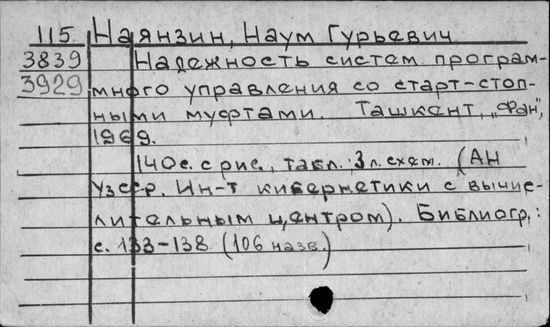 115 Наянзин, Наум Гурьевич
3839 Надежность систем програм-
3929 много управления со старт-стоп-
ными муфтами. Ташкент, „Фан",
1969.
140с. с рис., табл.; 3 л. схем. (АН
УзССР. Ин-т кибернетики с вычис-
лительным центром). Библиогр.:
с. 133-138 (106 назв.)